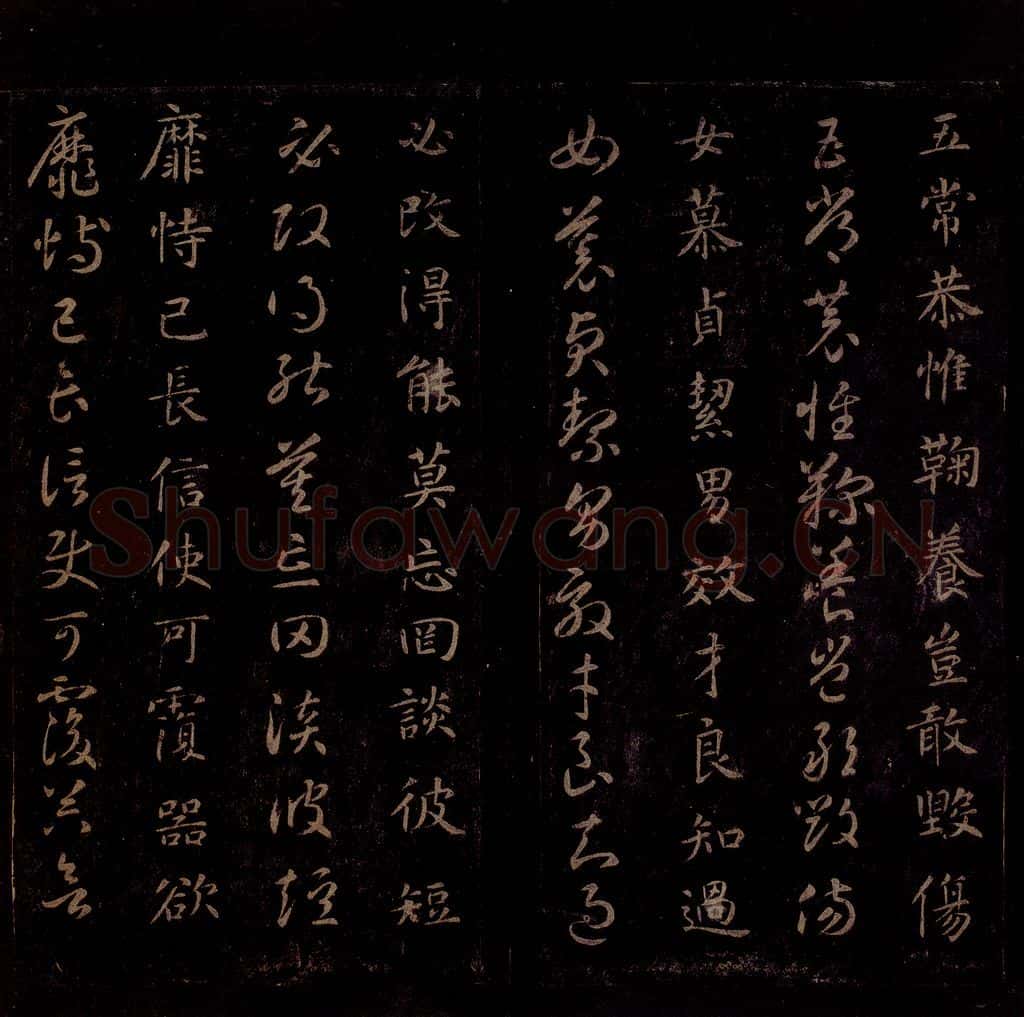 五常恭惟鞠養豈敢毀傷
五常恭惟鞠養豈敢毀傷
女慕貞絜男效才良知過
女慕貞絜男效才良知過
必改得能莫忘罔談彼短
必改得能莫忘罔談彼短
靡恃己長信使可覆器欲
靡恃己長信使可覆器欲
Shufawang.CN